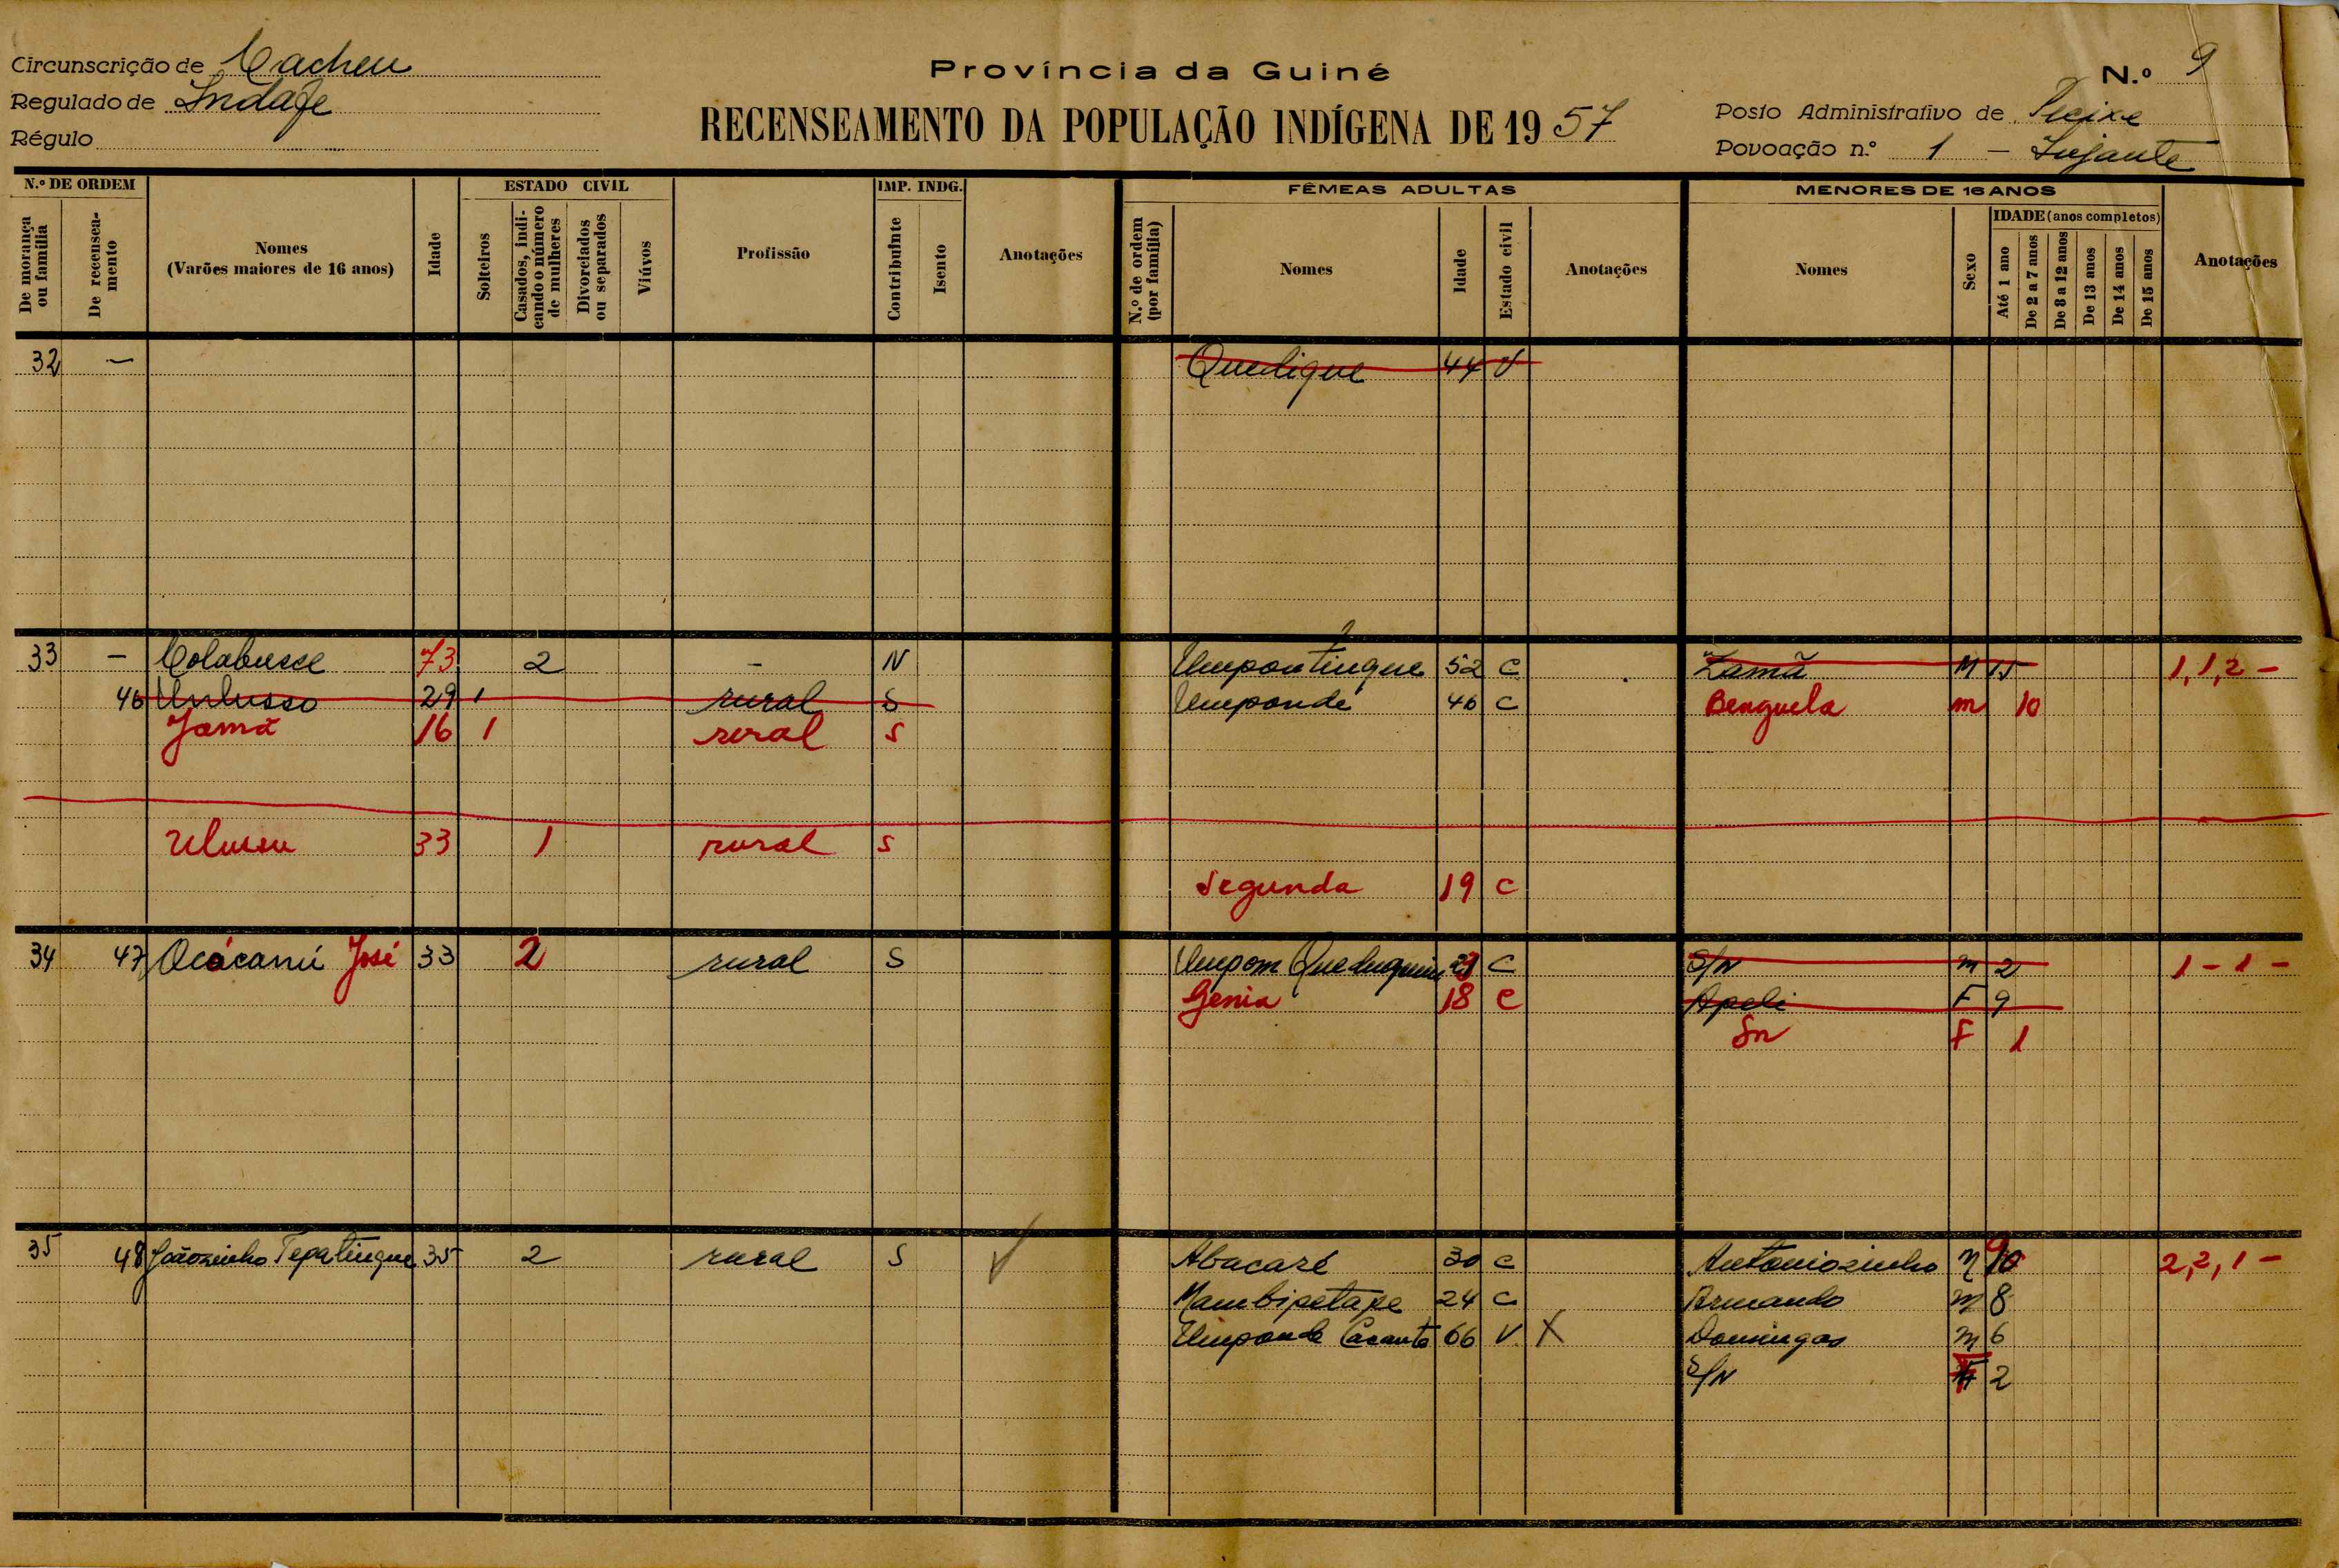 Circunscrição de Cacheu
Regulado de Indafe
Régulo
Província da Guiné
RECENSEAMENTO DA POPULAÇÃO INDÍGENA DE 1957
N.º 9
Posto Administrativo de Pecixe
Povoação n.º 1 –
N.º DE ORDEM
De morança ou família
De recenseamento
Nomes
(Varões maiores de 16 anos)
Idade
ESTADO CIVIL
Solteiros
Casados, indicando o número de mulheres
Divorciados ou separados
Viúvos
Profissão
IMP. INDG.
Contribuinte
Isento
Anotações
FÊMEAS ADULTAS
N.º de ordem (por família)
Nomes
Idade
Estado civil
Anotações
MENORES DE 16 ANOS
Nomes
Sexo
IDADE (anos completos)
Até 1 ano
De 2 a 7 anos
De 8 a 12 anos
De 13 anos
De 14 anos
De 15 anos
Anotações
32 – Quelique 44 V
33 – 73 2 – N Umpontinque 52 C Zamã M 15 1, 1, 2 –
46 29 1 rural S Umpondé 46 C Benguela m 10
Jamã 16 1 rural S
33 1 rural S
Segunda 19 C
34 47 José 33 2 rural S C S/N m 2 1 – 1 –
Genia 18 C Apeli F 9
Sn F 1
35 48 Joãozinho Tepatinque 35 2 rural S Abacaré 30 C Antoniozinho 2, 2, 1 –
Mambipetape 24 C Armando m 8
Umponde Cacante 66 V X Domingos m 6
S/N F 2